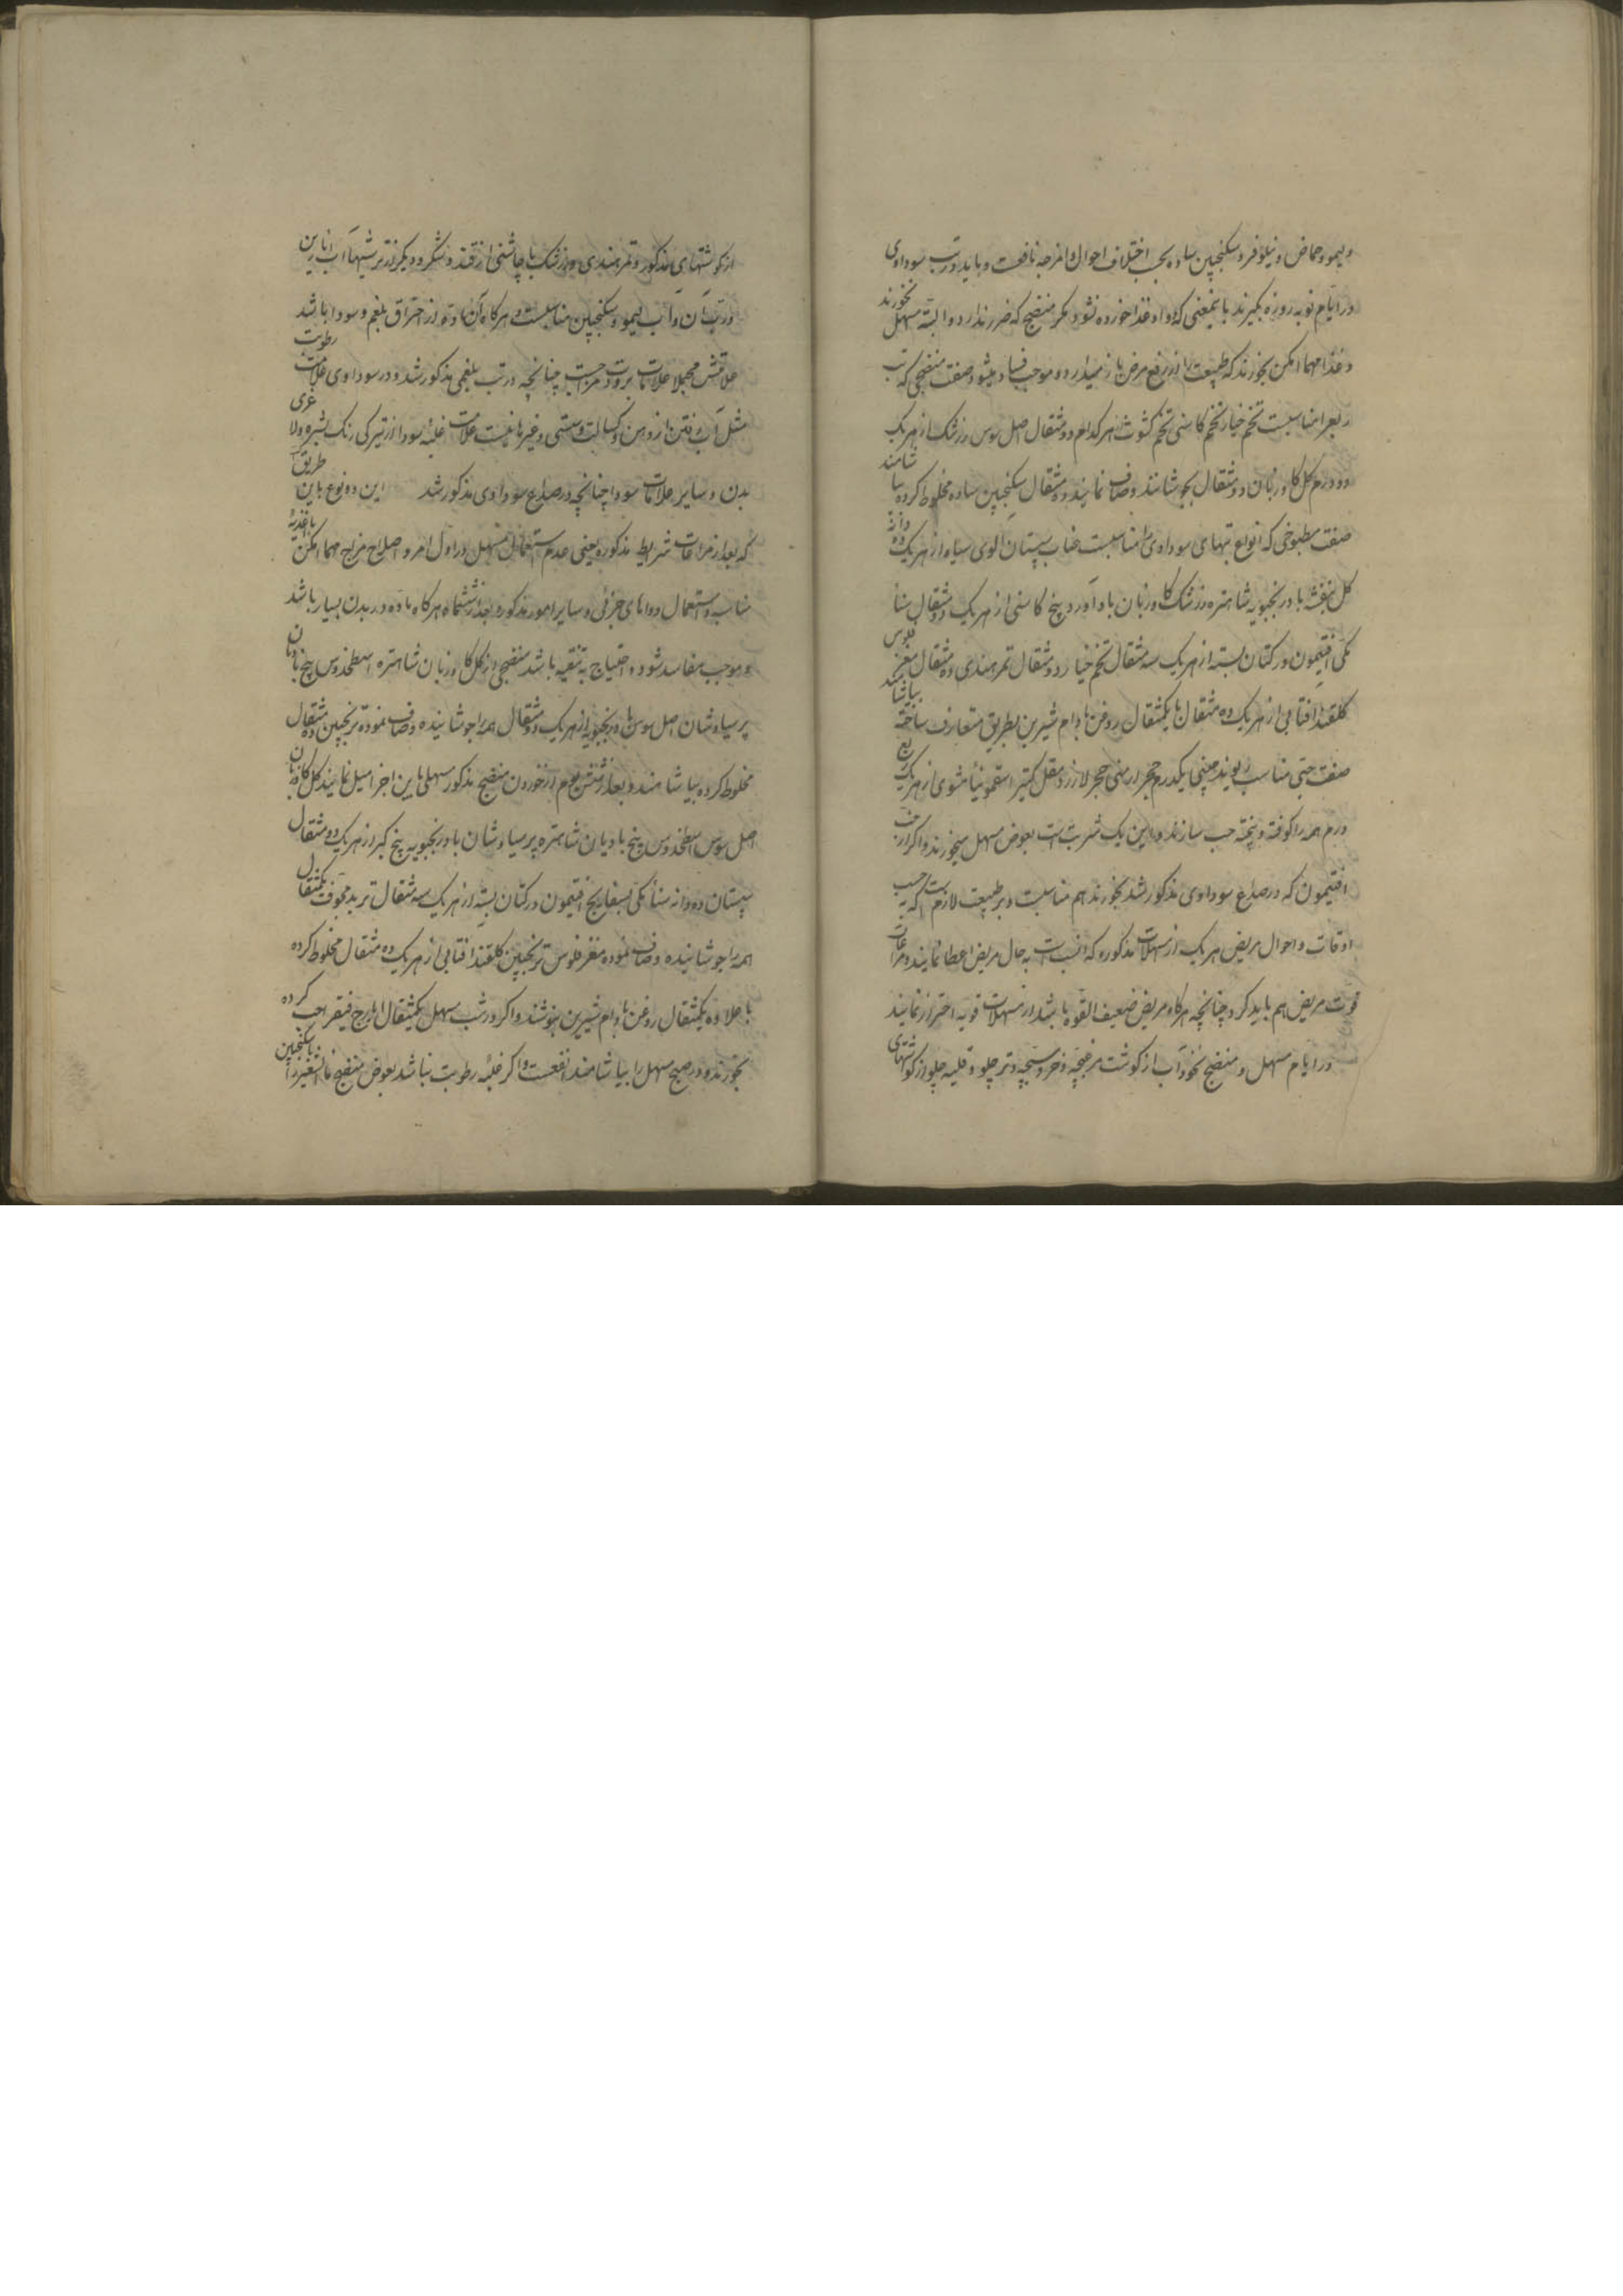 ولیمو و حماض و نیلوفر و سکنجبین ساده بحسب اختلاف احوال و امزجه نافعست و باید در تب سوداوی
در ایام نوبه روزه بگیرند باینمعنی که دوا و غذا خورده نشود مگر منضج که ضرر ندارد و البته مسهل نخورند
و غذا مهما امکن نخورند که طبیعت را از دفع مرض باز میدارد و موجب فساد میشود صفت منضجی که تب
ربع را مناسبست تخم خیار تخم کاسنی تخم کشوث هرکدام دو مثقال اصل سوس زرشک از هریک
دو درم گل گاوزبان دو مثقال بجوشانند و صاف نمایند و ده مثقال سکنجبین ساده مخلوط کرده بیاشامند
صفت مطبوخی که انواع تبهای سوداوی را مناسبست عناب سپستان آلوی سیاه از هریک ده دانه
گل بنفشه بادرنجبویه شاهتره زرشک گاوزبان بادآورد بیخ کاسنی از هریک دو مثقال سنا
مکی افتیمون در کتان بسته از هریک سه مثقال تخم خیار دو مثقال تمرهندی ده مثقال مغز فلوس
گلقند آفتابی از هریک ده مثقال با یکمثقال روغن بادام شیرین بطریق متعارف ساخته بیاشامند
صفت حبی مناسب ریوند چینی یکدرم حجر ارمنی حجر لاژورد مقل کتیرا سقمونیا مشوی از هریک ربع
درم همه را کوفته و بیخته حب سازند و این یک شربت است بعوض مسهل میخورند و اگر از حب
افتیمون که در صداع سوداوی مذکور شد بخورند هم مناسبست و بر طبیب لازم است که بحسب
اوقات و احوال مریض هریک از مسهلات مذکوره که انسب است به حال مریض اعطا نمایند و مراعات
قوت مریض هم باید کرد چنانچه هرکاه مریض ضعیف القوه باشد از مسهلات قویه احتراز نمایند
در ایام مسهل و منضج نخودآب از گوشت مرغبچه و خروسبچه و تر چلو و قلیه چلو از گوشتهای
از گوشتهای مذکور و تمرهندی و زرشک با چاشنی از قند و شکر و دیگر از ترشیها آب انارین
و رب آن و آب لیمو و سکنجبین مناسبست و هرکاه آن ماده از احتراق بلغم و سودا باشد
علامتش مجملا علامات برودت و رطوبت مزاجست چنانچه در تب بلغمی مذکور شد و در سوداوی علامات
مثل آب رفتن از دهن و کسالت و سستی و غیرها نیست علامت غلبه سودا از تیرکی رنگ بشره و لاغری
بدن و سایر علامات سودا چنانچه در صداع سوداوی مذکور شد این دو نوع باین طریق
که بعد از مراعات شرایط مذکوره یعنی عدم استعمال مسهل در اول امر و اصلاح مزاج مهما امکن باغذیه
مناسبه و استعمال دواهای جزئی و سایر امور مذکوره بعد از ششماه هرکاه ماده در بدن بسیار باشد
و موجب مفاسد شود و احتیاج به تنقیه باشد منضجی از گل گاوزبان شاهتره اسطخدوس بیخ بادیان
پرسیاوشان اصل سوس بادرنجبویه از هریک دو مثقال همه را جوشانیده و صاف نموده ترنجبین ده مثقال
مخلوط کرده بیاشامند و بعد از شش یوم از خوردن منضج مذکور مسهلی باین اجزا میل نمایند گل گاوزبان
اصل سوس اسطخدوس بیخ بادیان شاهتره پرسیاوشان بادرنجبویه بیخ کبر از هریک دو مثقال
سپستان ده دانه سنا مکی بسفایج افتیمون در کتان بسته از هریک سه مثقال تربد مجوف یکمثقال
همه را جوشانیده و صاف نموده مغز فلوس ترنجبین گلقند آفتابی از هریک ده مثقال مخلوط کرده
با علاوه یکمثقال روغن بادام شیرین بنوشند و اگر در شب مسهل یکمثقال ایارج فیقرا حب کرده
بخورند و در صبح مسهل را بیاشامند انفعست و اگر غلبه رطوبت نباشد بعوض منضج ماءالشعیر را با سکنجبین